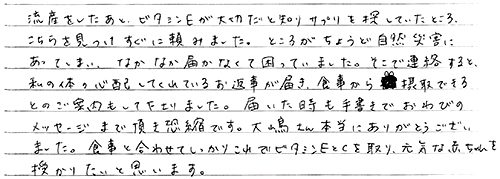 流産をしたあと、ビタミンEが大切だと知りサプリを探していたところ、
こちらを見つけすぐに頼みました。ところがちょうど自然災害に
あってしまい、なかなか届かなくて困っていました。そこで連絡すると、
私の体の心配してくれているお返事が届き、食事から摂取できる
とのご案内もして下さりました。届いた時も手書きでおわびの
メッセージまで頂き恐縮です。大島さん本当にありがとうござい
ました。食事と合わせてしっかりこれでビタミンEとCを取り、元気な赤ちゃんを
授かりたいと思います。